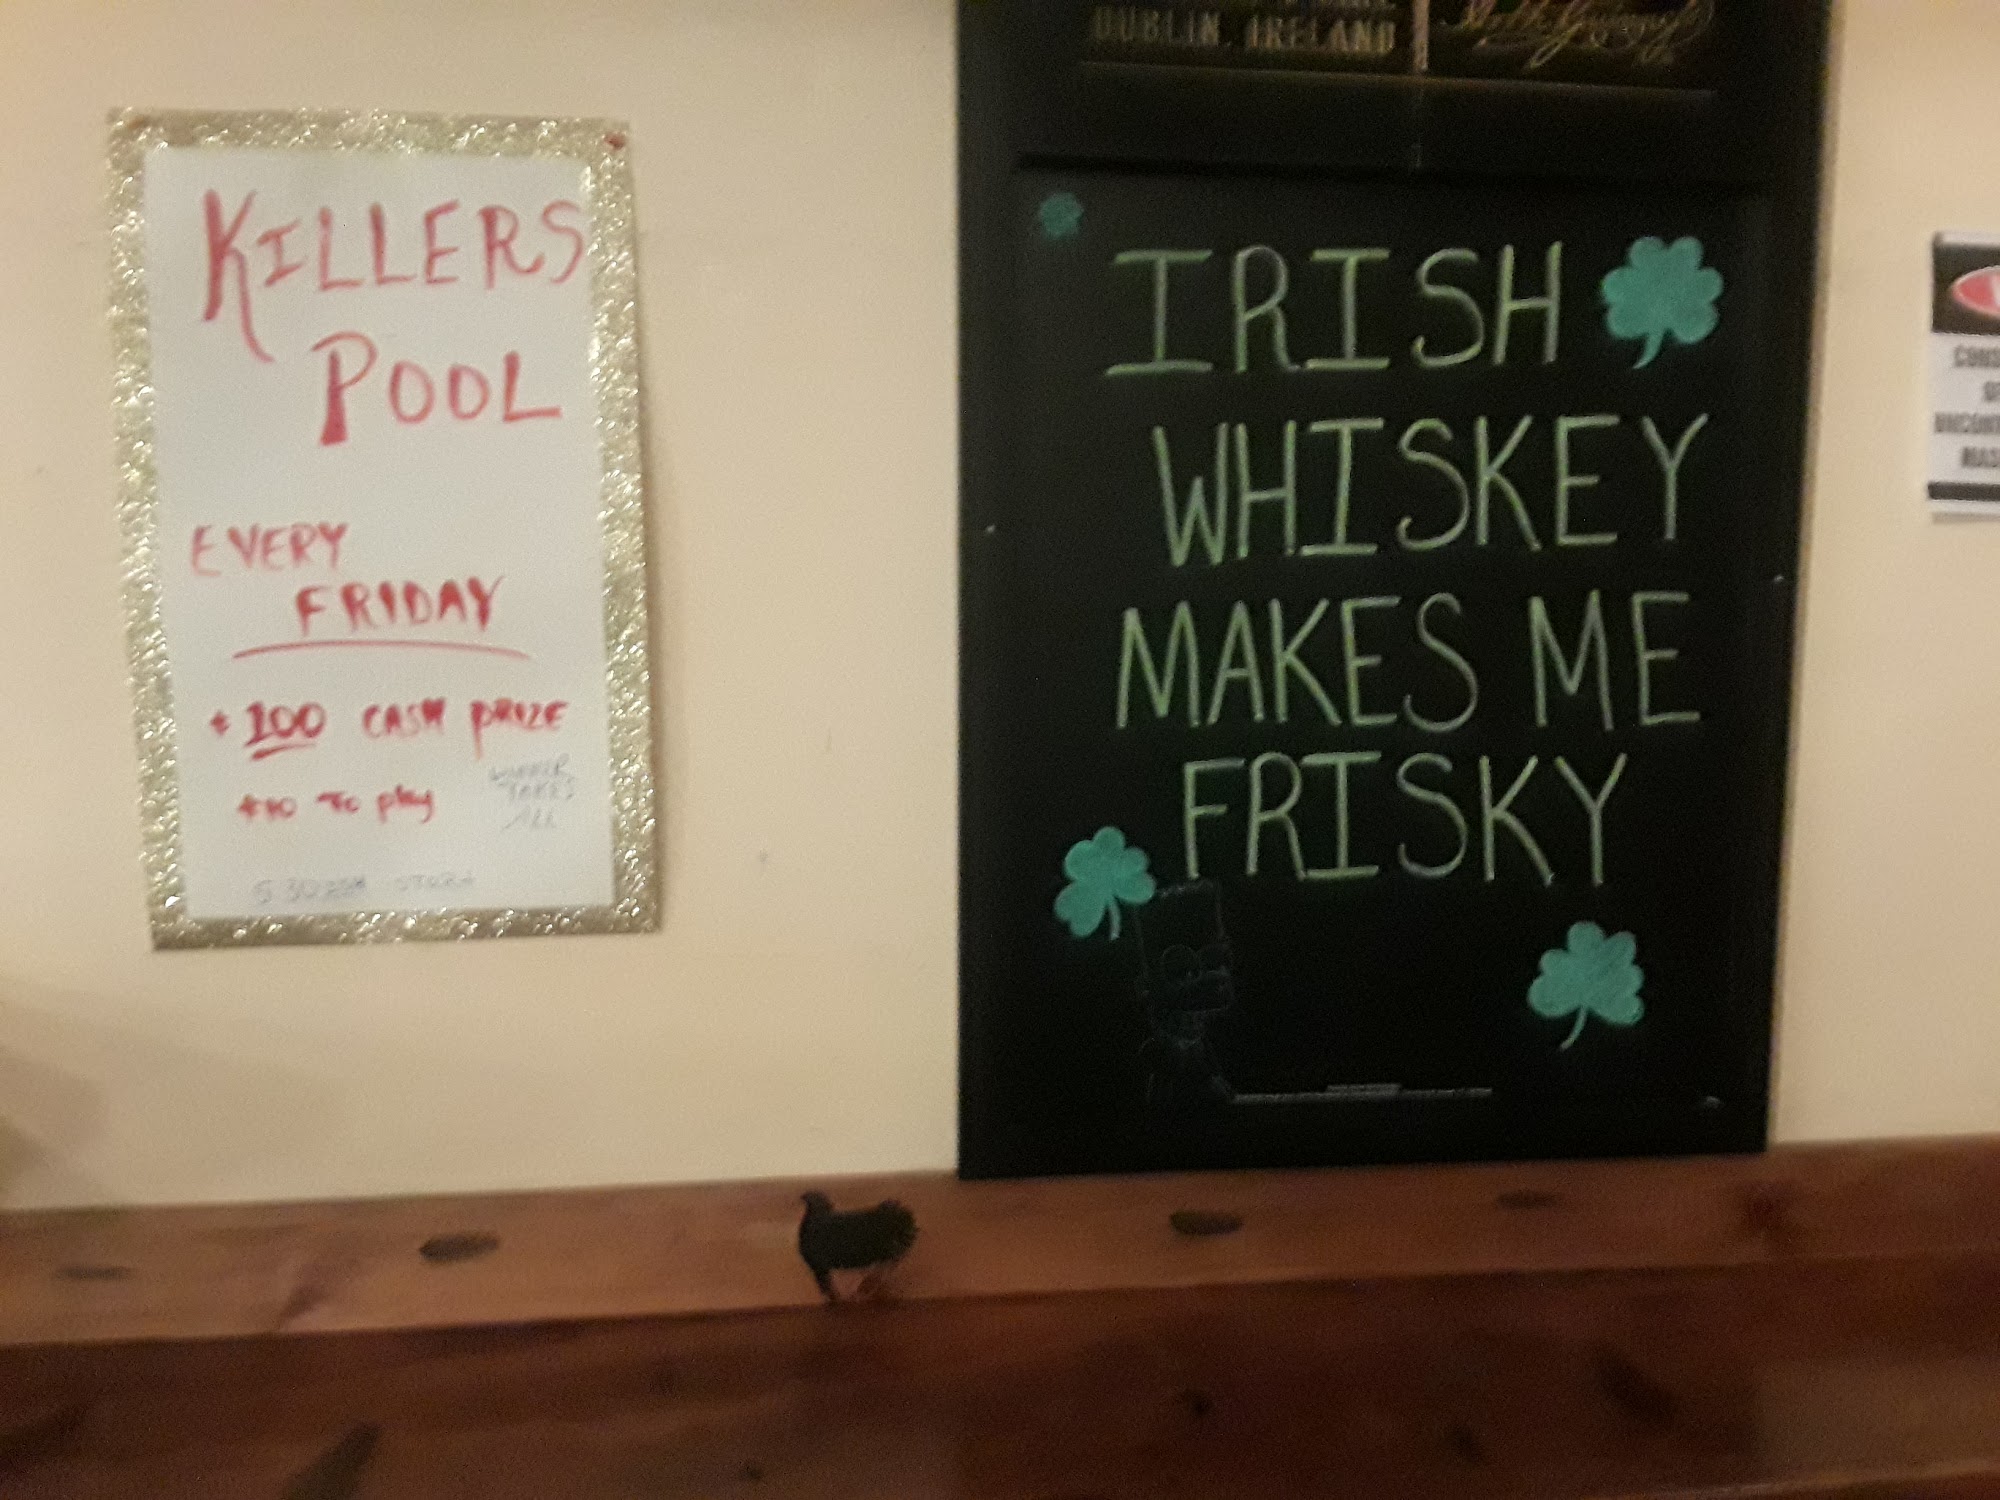 KILLERS
POOL
EVERY
FRIDAY
$100 CASH PRIZE
$10 To play
WINNER
TAKES
ALL
5:30PM START
DUBLIN, IRELAND
IRISH
WHISKEY
MAKES ME
FRISKY